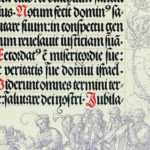 tus. Notum fecit dominꝰ sa
utare suum: in conspectu gen
um reuelauit iusticiam suā
Recordatꝰ ē misericordie sue:
t veritatis sue domui israel
Viderunt omnes termini ter
: salutare dei nostri. Jubila